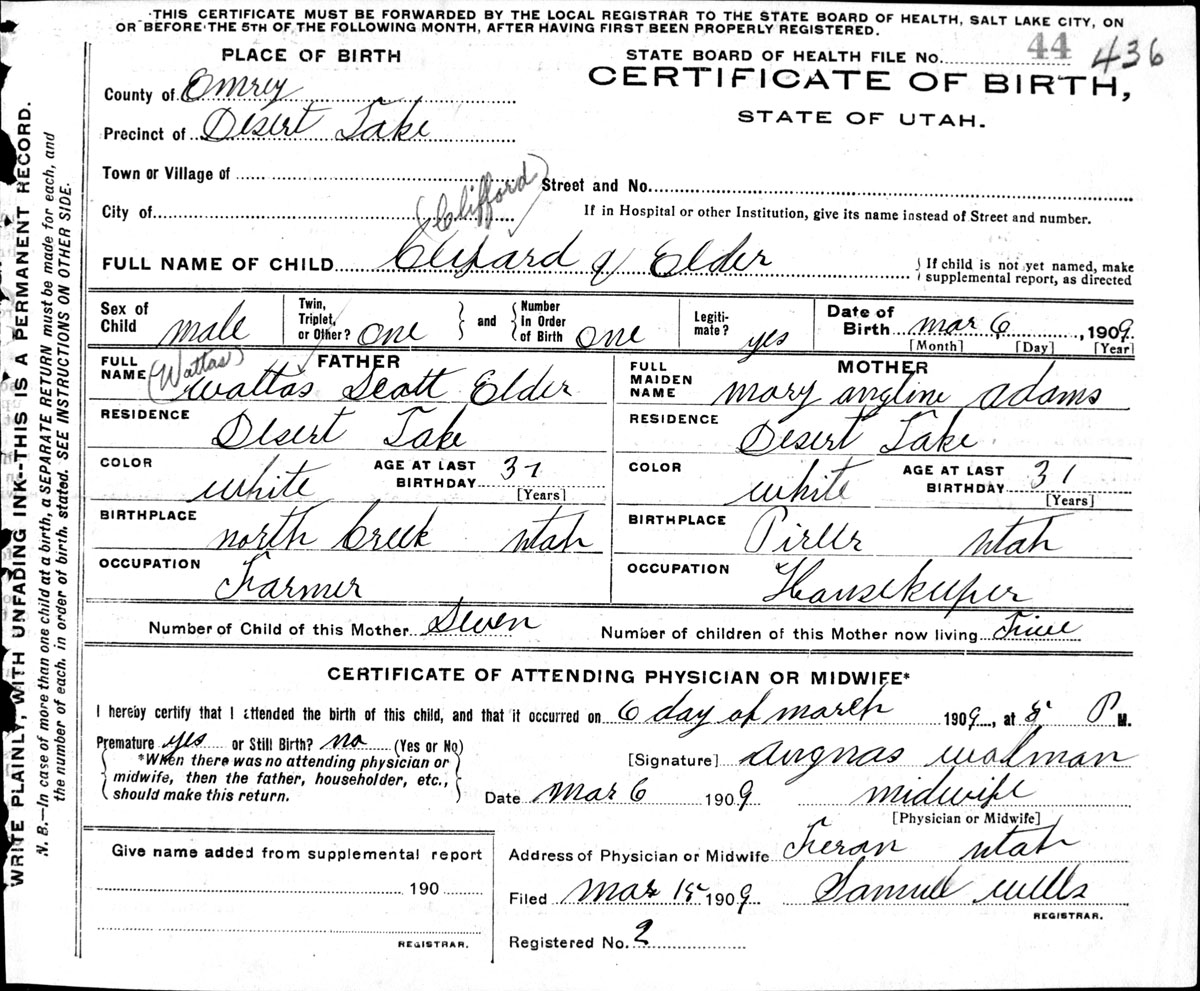 ·THIS CERTIFICATE MUST BE FORWARDED BY THE LOCAL REGISTRAR TO THE STATE BOARD OF HEALTH, SALT LAKE CITY, ON
OR BEFORE THE 5TH OF THE FOLLOWING MONTH, AFTER HAVING FIRST BEEN PROPERLY REGISTERED.
WRITE PLAINLY, WITH UNFADING INK--THIS IS A PERMANENT RECORD.
N. B.—In case of more than one child at a birth, a SEPARATE RETURN must be made for each, and
the number of each, in order of birth, stated. SEE INSTRUCTIONS ON OTHER SIDE.
PLACE OF BIRTH
STATE BOARD OF HEALTH FILE No. 44 436
CERTIFICATE OF BIRTH,
STATE OF UTAH.
County of Emrey
Precinct of Desert Lake
Town or Village of
Street and No.
City of
If in Hospital or other Institution, give its name instead of Street and number.
(Clifford)
FULL NAME OF CHILD Clifard J Elder
If child is not yet named, make
supplemental report, as directed
Sex of Child male
Twin, Triplet, or Other? one
and
Number In Order of Birth one
Legiti-mate? yes
Date of Birth mar 6, 1909
[Month] [Day] [Year]
FATHER
FULL NAME (Wattas) wattas Scott Elder
RESIDENCE Desert Lake
COLOR white
AGE AT LAST BIRTHDAY 37
[Years]
BIRTHPLACE north Creek utah
OCCUPATION Farmer
MOTHER
FULL MAIDEN NAME mary angline adams
RESIDENCE Desert Lake
COLOR white
AGE AT LAST BIRTHDAY 31
[Years]
BIRTHPLACE utah
OCCUPATION Hausekeeper
Number of Child of this Mother Seven
Number of children of this Mother now living Five
CERTIFICATE OF ATTENDING PHYSICIAN OR MIDWIFE*
I hereby certify that I attended the birth of this child, and that it occurred on 6 day of march 1909, at 8 P M.
Premature yes or Still Birth? no (Yes or No)
*When there was no attending physician or
midwife, then the father, householder, etc.,
should make this return.
[Signature] walman
Date mar 6 1909 midwife
[Physician or Midwife]
Give name added from supplemental report
190
REGISTRAR.
Address of Physician or Midwife Feron utah
Filed mar 15 1909 Samuel wells
REGISTRAR.
Registered No. 2